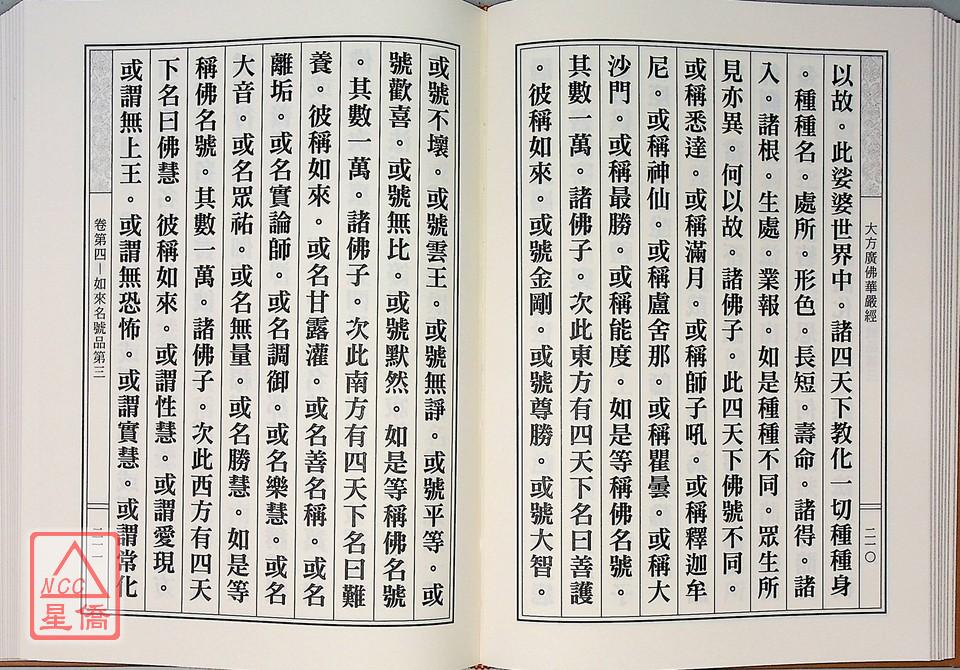 大方廣佛華嚴經
二二〇
以故。此娑婆世界中。諸四天下教化一切種種身
。種種名。處所。形色。長短。壽命。諸得。諸
入。諸根。生處。業報。如是種種不同。眾生所
見亦異。何以故。諸佛子。此四天下佛號不同。
或稱悉達。或稱滿月。或稱師子吼。或稱釋迦牟
尼。或稱神仙。或稱盧舍那。或稱瞿曇。或稱大
沙門。或稱最勝。或稱能度。如是等稱佛名號。
其數一萬。諸佛子。次此東方有四天下名曰善護
。彼稱如來。或號金剛。或號尊勝。或號大智。
或號不壞。或號雲王。或號無諍。或號平等。或
號歡喜。或號無比。或號默然。如是等稱佛名號
。其數一萬。諸佛子。次此南方有四天下名曰難
養。彼稱如來。或名甘露灌。或名善名稱。或名
離垢。或名實論師。或名調御。或名樂慧。或名
大音。或名眾祐。或名無量。或名勝慧。如是等
稱佛名號。其數一萬。諸佛子。次此西方有四天
下名曰佛慧。彼稱如來。或謂性慧。或謂愛現。
或謂無上王。或謂無恐怖。或謂實慧。或謂常化
卷第四－如來名號品第三
NCC
星僑